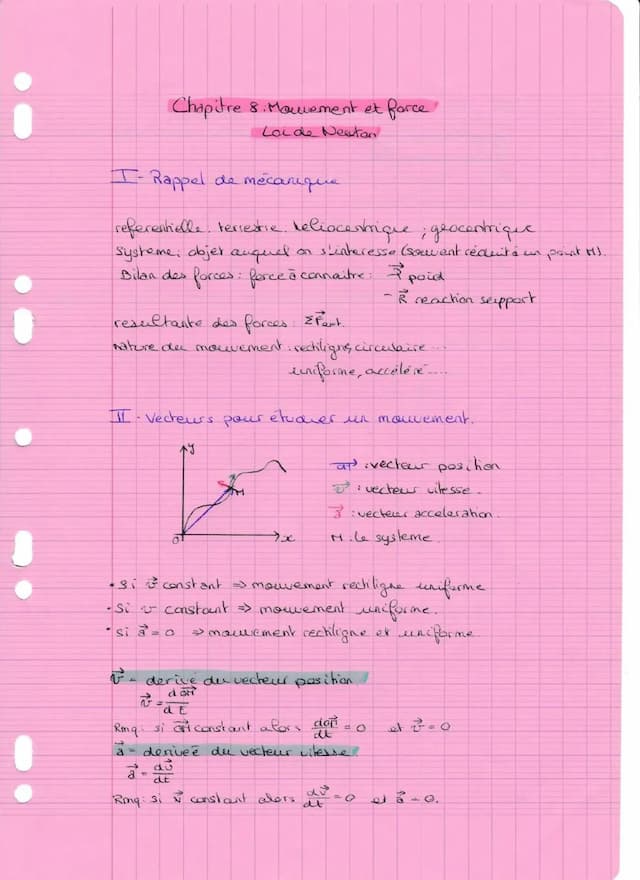 Chapitre 8 : Mouvement et force
Loi de Newton
I - Rappel de mécanique
referentielle : terrestre, heliocentrique ; geocentrique
Systeme : objet auquel on s'interesse (souvent réduit à un point M).
Bilan des forces : force à connaitre : - P⃗ poid
- R⃗ reaction support
resultante des forces : ΣF⃗ext.
nature du mouvement : rectiligne, circulaire ...
uniforme, accéléré ....
II - Vecteurs pour étudier un mouvement.
y
M
O
x
OM⃗ : vecteur position
v⃗ : vecteur vitesse.
a⃗ : vecteur acceleration.
M : le systeme
• Si v⃗ constant => mouvement rectiligne uniforme
• Si v constant => mouvement uniforme.
• si a⃗ = 0 => mouvement rectiligne et uniforme
v⃗ = derivé du vecteur position
v⃗ = dOM⃗/dt
Rmq : si OM⃗ constant alors dOM⃗/dt = 0 et v⃗ = 0
a⃗ = derivée du vecteur vitesse
a⃗ = dv⃗/dt
Rmq : si v⃗ constant alors dv⃗/dt = 0 et a⃗ = 0.